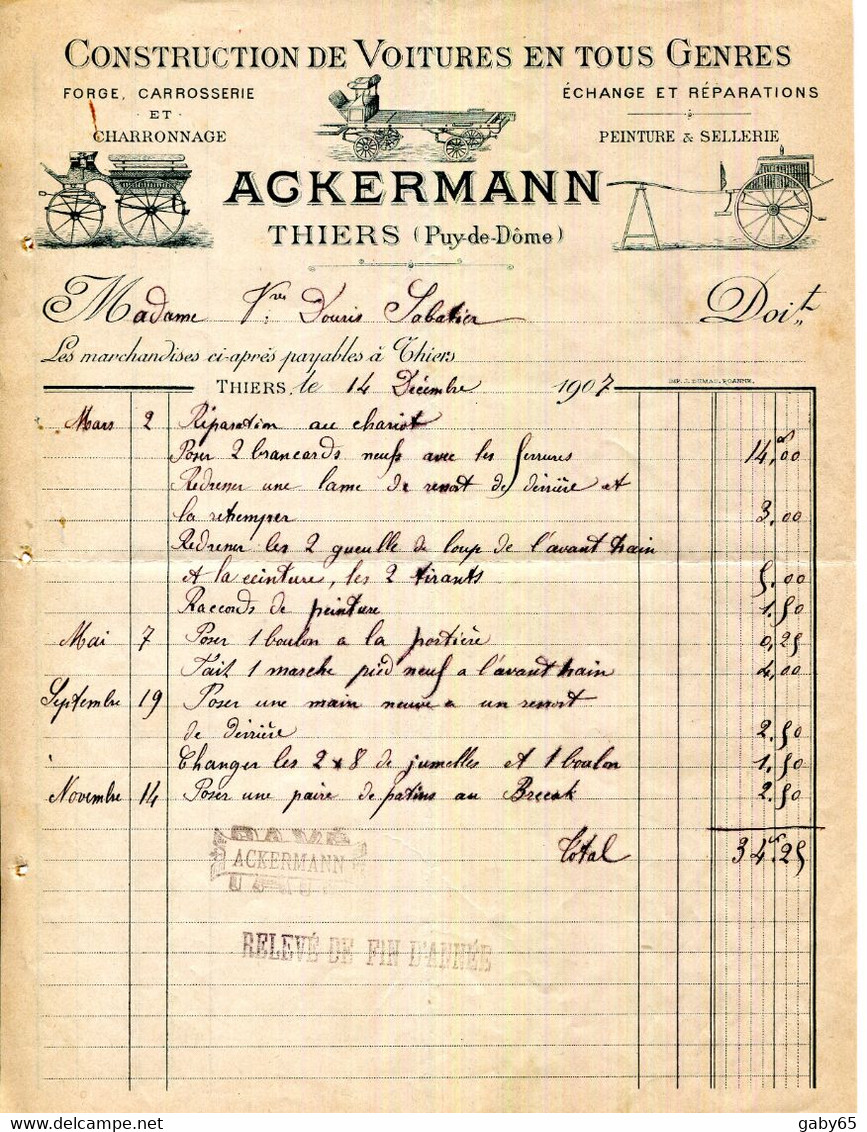 CONSTRUCTION DE VOITURES EN TOUS GENRES
FORGE, CARROSSERIE
ET
CHARRONNAGE
ÉCHANGE ET RÉPARATIONS
PEINTURE & SELLERIE
ACKERMANN
THIERS (Puy-de-Dôme)
Madame Vve Douris Sabatier Doit
Les marchandises ci-après payables à Thiers
THIERS, le 14 Décembre 1907
IMP. J. DUMAS, ROANNE.
Mars 2 Réparation au chariot
Poser 2 brancards neufs avec les ferrures 14,00
Redresser une lame de ressort de derrière et
la retremper 3.00
Redresser les 2 gueulle de loup de l'avant train
et la ceinture, les 2 tirants 5.00
Raccords de peinture 1.50
Mai 7 Poser 1 boulon a la portière 0,25
Fait 1 marche pied neuf a l'avant train 4,00
Septembre 19 Poser une main neuve a un ressort
de derrière 2.50
Changer les 2 x 8 de jumelles et 1 boulon 1.50
Novembre 14 Poser une paire de patins au Breeak 2.50
Total 34.25
ACKERMANN
RELEVÉ DE FIN D'ANNÉE
delcampe.net
gaby65